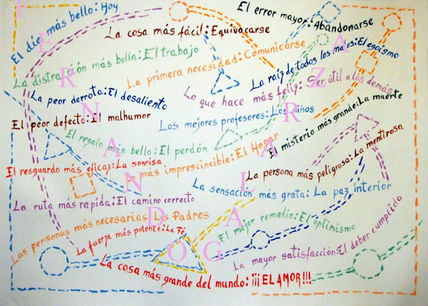 El día más bello: Hoy
El error mayor: Abandonarse
La cosa más fácil: Equivocarse
La distracción más bella: El trabajo
La primera necesidad: Comunicarse
La raíz de todos los males: El egoísmo
La peor derrota: El desaliente
Lo que hace más feliz: Ser útil a los demás
El peor defecto: El malhumor
Los mejores profesores: Los niños
El misterio más grande: La muerte
El regalo más bello: El perdón
El resguardo más eficaz: La sonrisa
más imprescindible: El Hogar
La persona más peligrosa: La mentirosa
La sensación más grata: La paz interior
La ruta más rápida: El camino correcto
Las personas más necesarias: Los Padres
El mejor remedio: El optimismo
La fuerza más potente: La Fe
La mayor satisfacción: El deber cumplido
La cosa más grande del mundo: ¡¡¡EL AMOR!!!